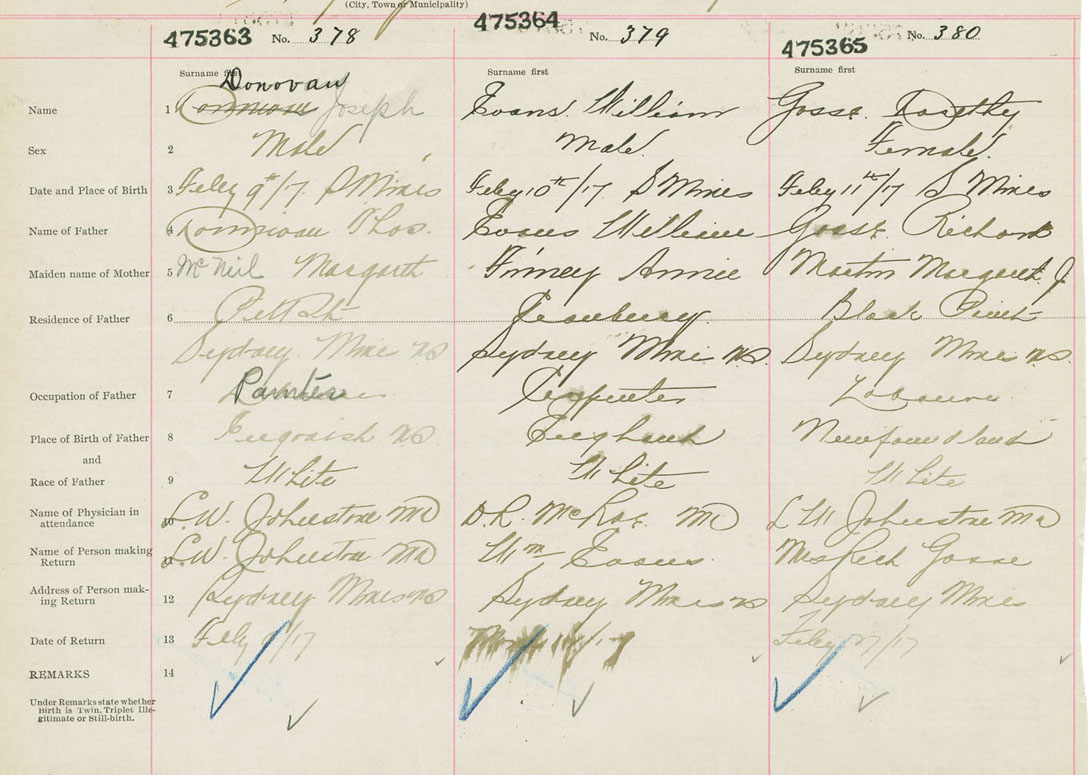 (City, Town or Municipality)
475363 No. 378 475364 No. 379 475365 No. 380
Surname first Surname first Surname first
Donovan
Name 1 Joseph Evans William Gosse Dorothy
Sex 2 Male Male Female
Date and Place of Birth 3 Feby 9th/17 S Mines Feby 10th/17 S Mines Feby 11th/17 S Mines
Name of Father 4 Donnovan Thos. Evans William Gosse Richard
Maiden name of Mother 5 McNeil Margaret Finney Annie Martin Margaret J
Residence of Father 6 Pitt St Cranberry Black Point
Sydney Mines NS Sydney Mines NS Sydney Mines NS
Occupation of Father 7 Painter Carpenter Labourer
Place of Birth of Father 8 NS England Newfoundland
and
Race of Father 9 White White White
Name of Physician in
attendance 10 L.W. Johnstone MD D.R. McRae MD L W Johnstone MD
Name of Person making
Return 11 L.W. Johnstone MD Wm Evans Mrs Rich Gosse
Address of Person mak-
ing Return 12 Sydney Mines NS Sydney Mines NS Sydney Mines
Date of Return 13 Feby 9/17 /17 Feby 27/17
REMARKS 14
Under Remarks state whether
Birth is Twin, Triplet Ille-
gitimate or Still-birth.